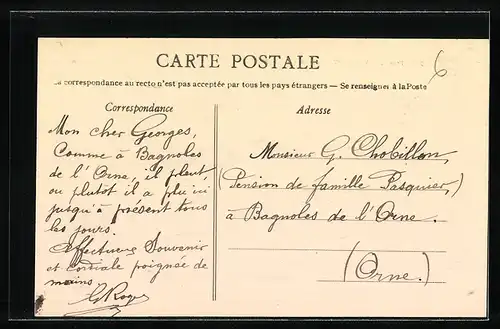 CARTE POSTALE
La correspondance au recto n'est pas acceptée par tous les pays étrangers — Se renseigner à la Poste
6
Correspondance
Mon cher Georges,
Comme à Bagnoles
de l'Orne, il pleut,
ou plutôt il a plu ici
jusqu'à présent tous
les jours.
Affectueux Souvenir
et cordiale poignée de
mains
G Roger
Adresse
Monsieur G. Chobillon,
(Pension de famille Pasquier,)
à Bagnoles de l'Orne.
(Orne.)